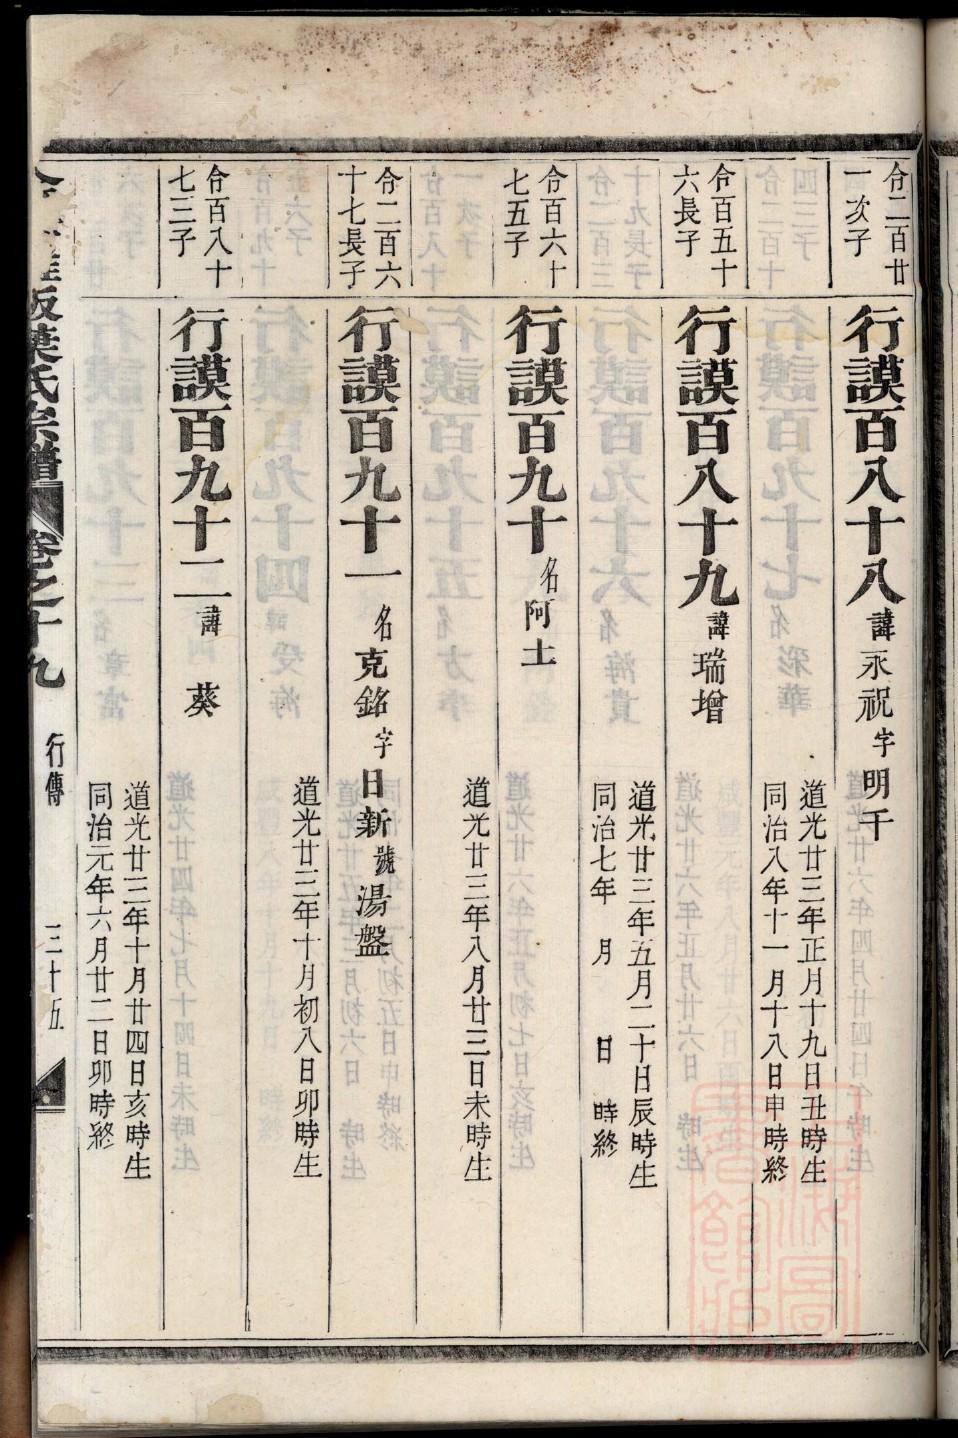 令二百廿
一次子
行謨百八十八諱永祝字明千
道光廿三年正月十九日丑時生
同治八年十一月十八日申時終
令百五十
六長子
行謨百八十九諱瑞增
道光廿三年五月二十日辰時生
同治七年　月　日　時終
令百六十
七五子
行謨百九十名阿土
道光廿三年八月廿三日未時生
令二百六
十七長子
行謨百九十一名克銘字日新號湯盤
道光廿三年十月初八日卯時生
令百八十
七三子
行謨百九十二諱葵
道光廿三年十月廿四日亥時生
同治元年六月廿二日卯時終
葉氏宗譜 卷之十九 行傳 三十五